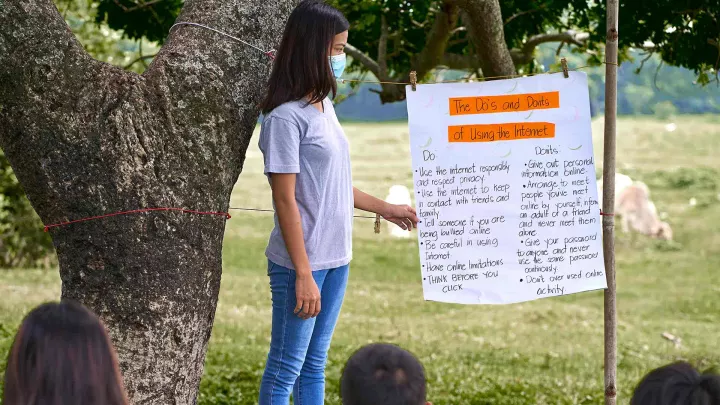 The Do's and Donts
of Using the Internet
Do:
• Use the internet responsibly
and respect privacy
• Use the internet to keep
in contact with friends and
family
• Tell someone if you are
being bullied online
• Be careful in using
Internet
• Have online limitations
• THINK BEFORE YOU
CLICK
Donts:
• Give out personal
information online
• Arrange to meet
people you've meet
online by yourself, inform
an adult of a friend
and never meet them
alone
• Give your password
to anyone and never
use the same password
continously.
• Don't over used online
activity